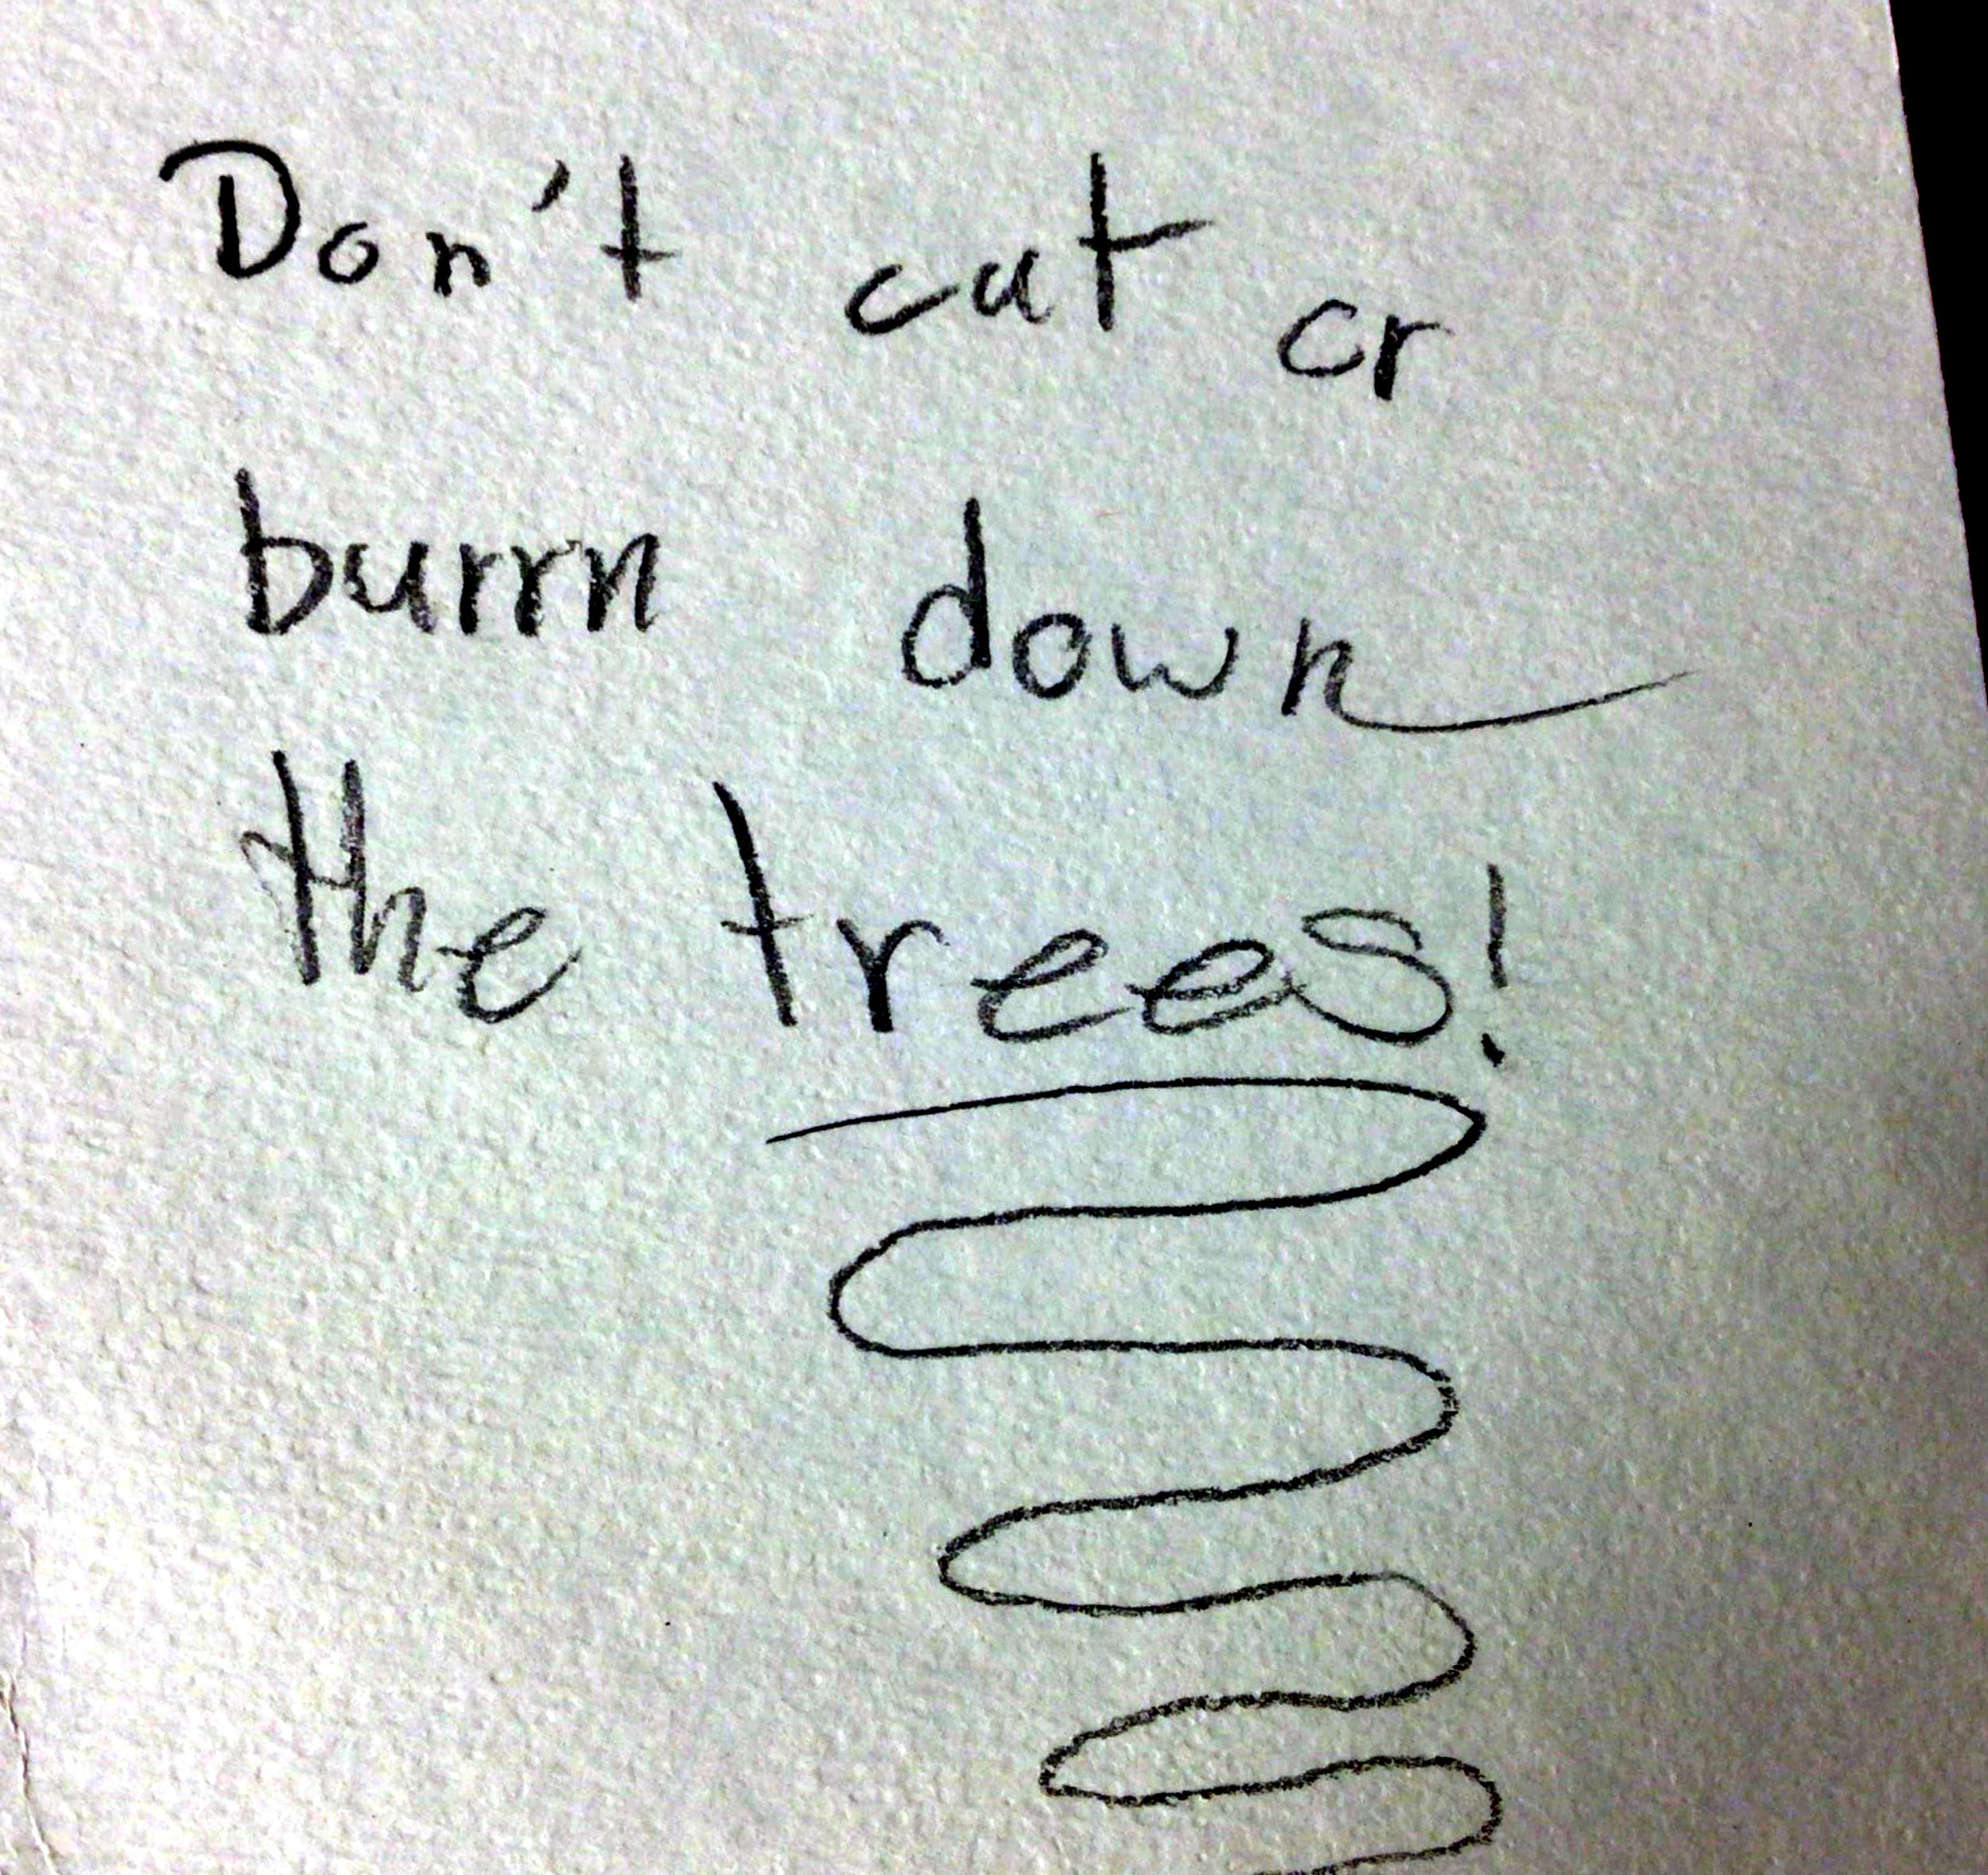 Don't cut or
burrn down
the trees!